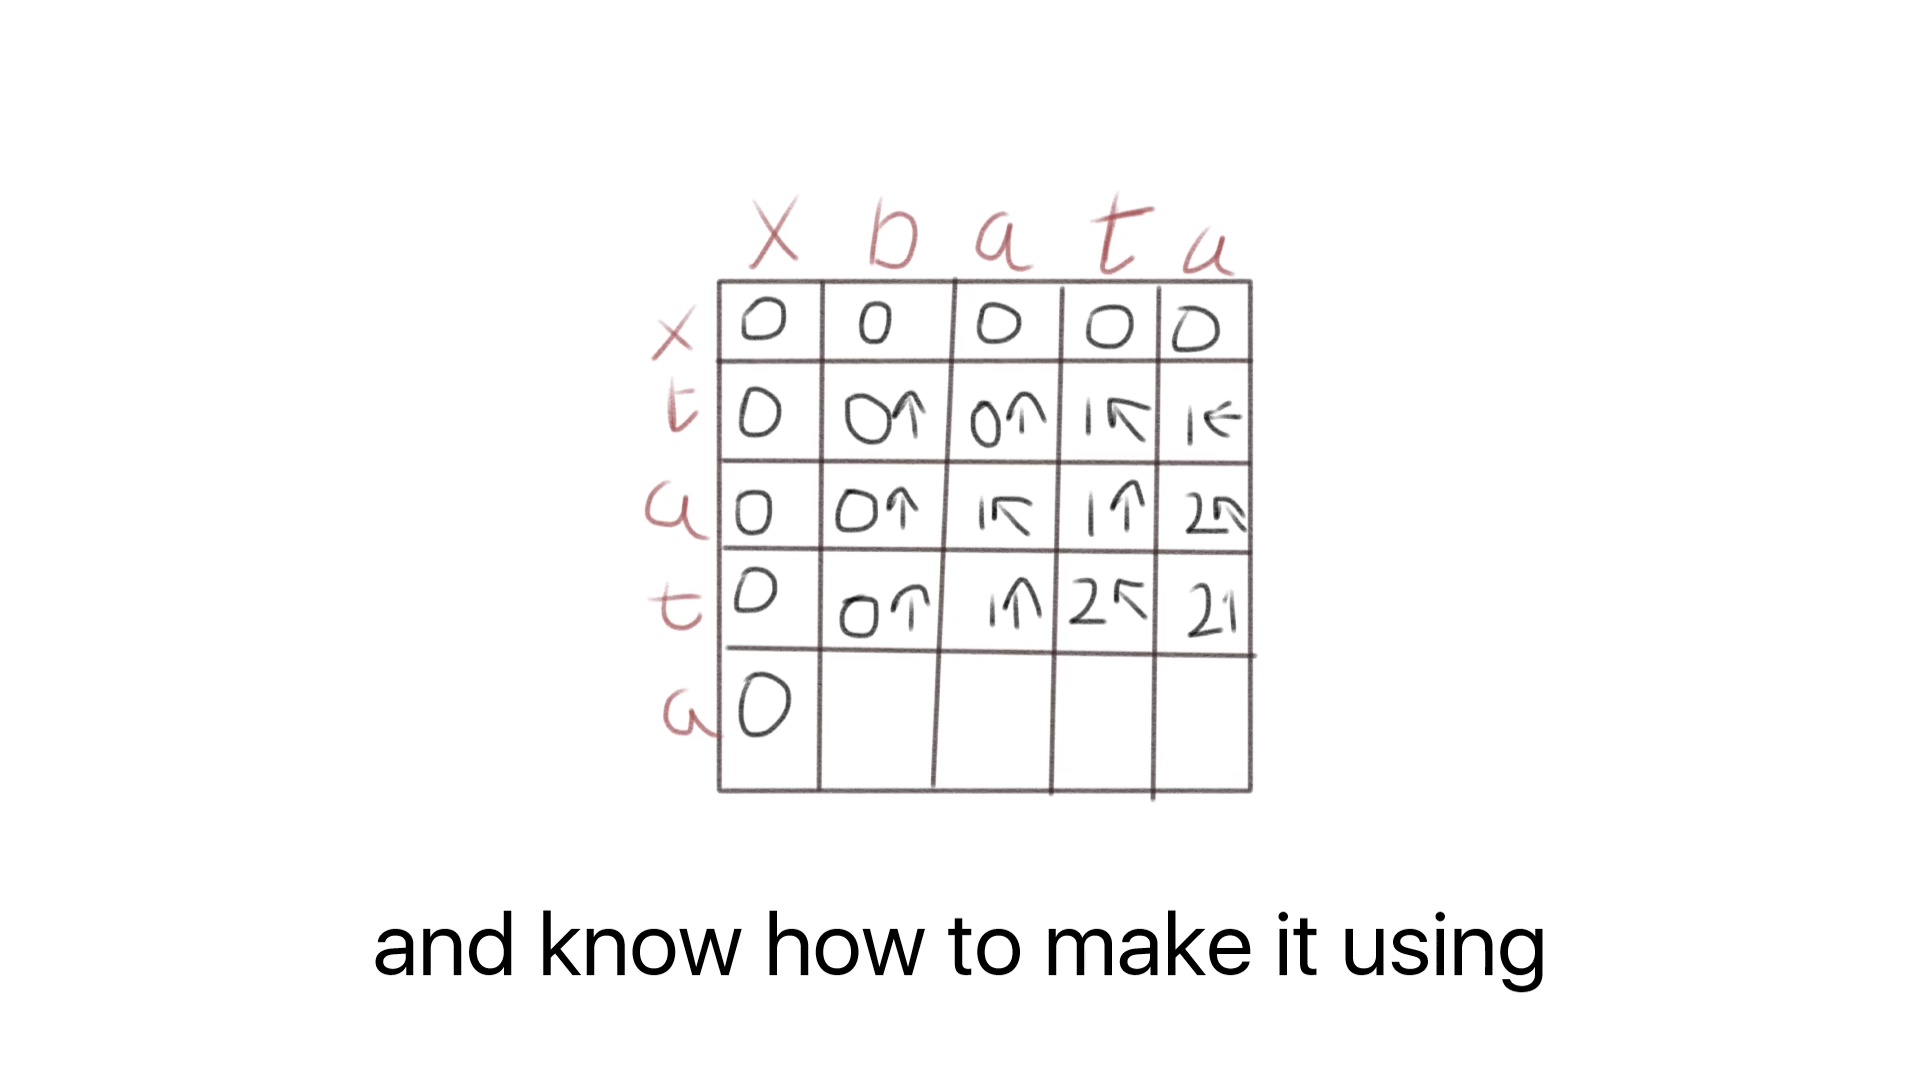 x b a t a
x 0 0 0 0 0
t 0 0↑ 0↑ 1↖ 1←
a 0 0↑ 1↖ 1↑ 2↖
t 0 0↑ 1↑ 2↖ 2↑
a 0
and know how to make it using